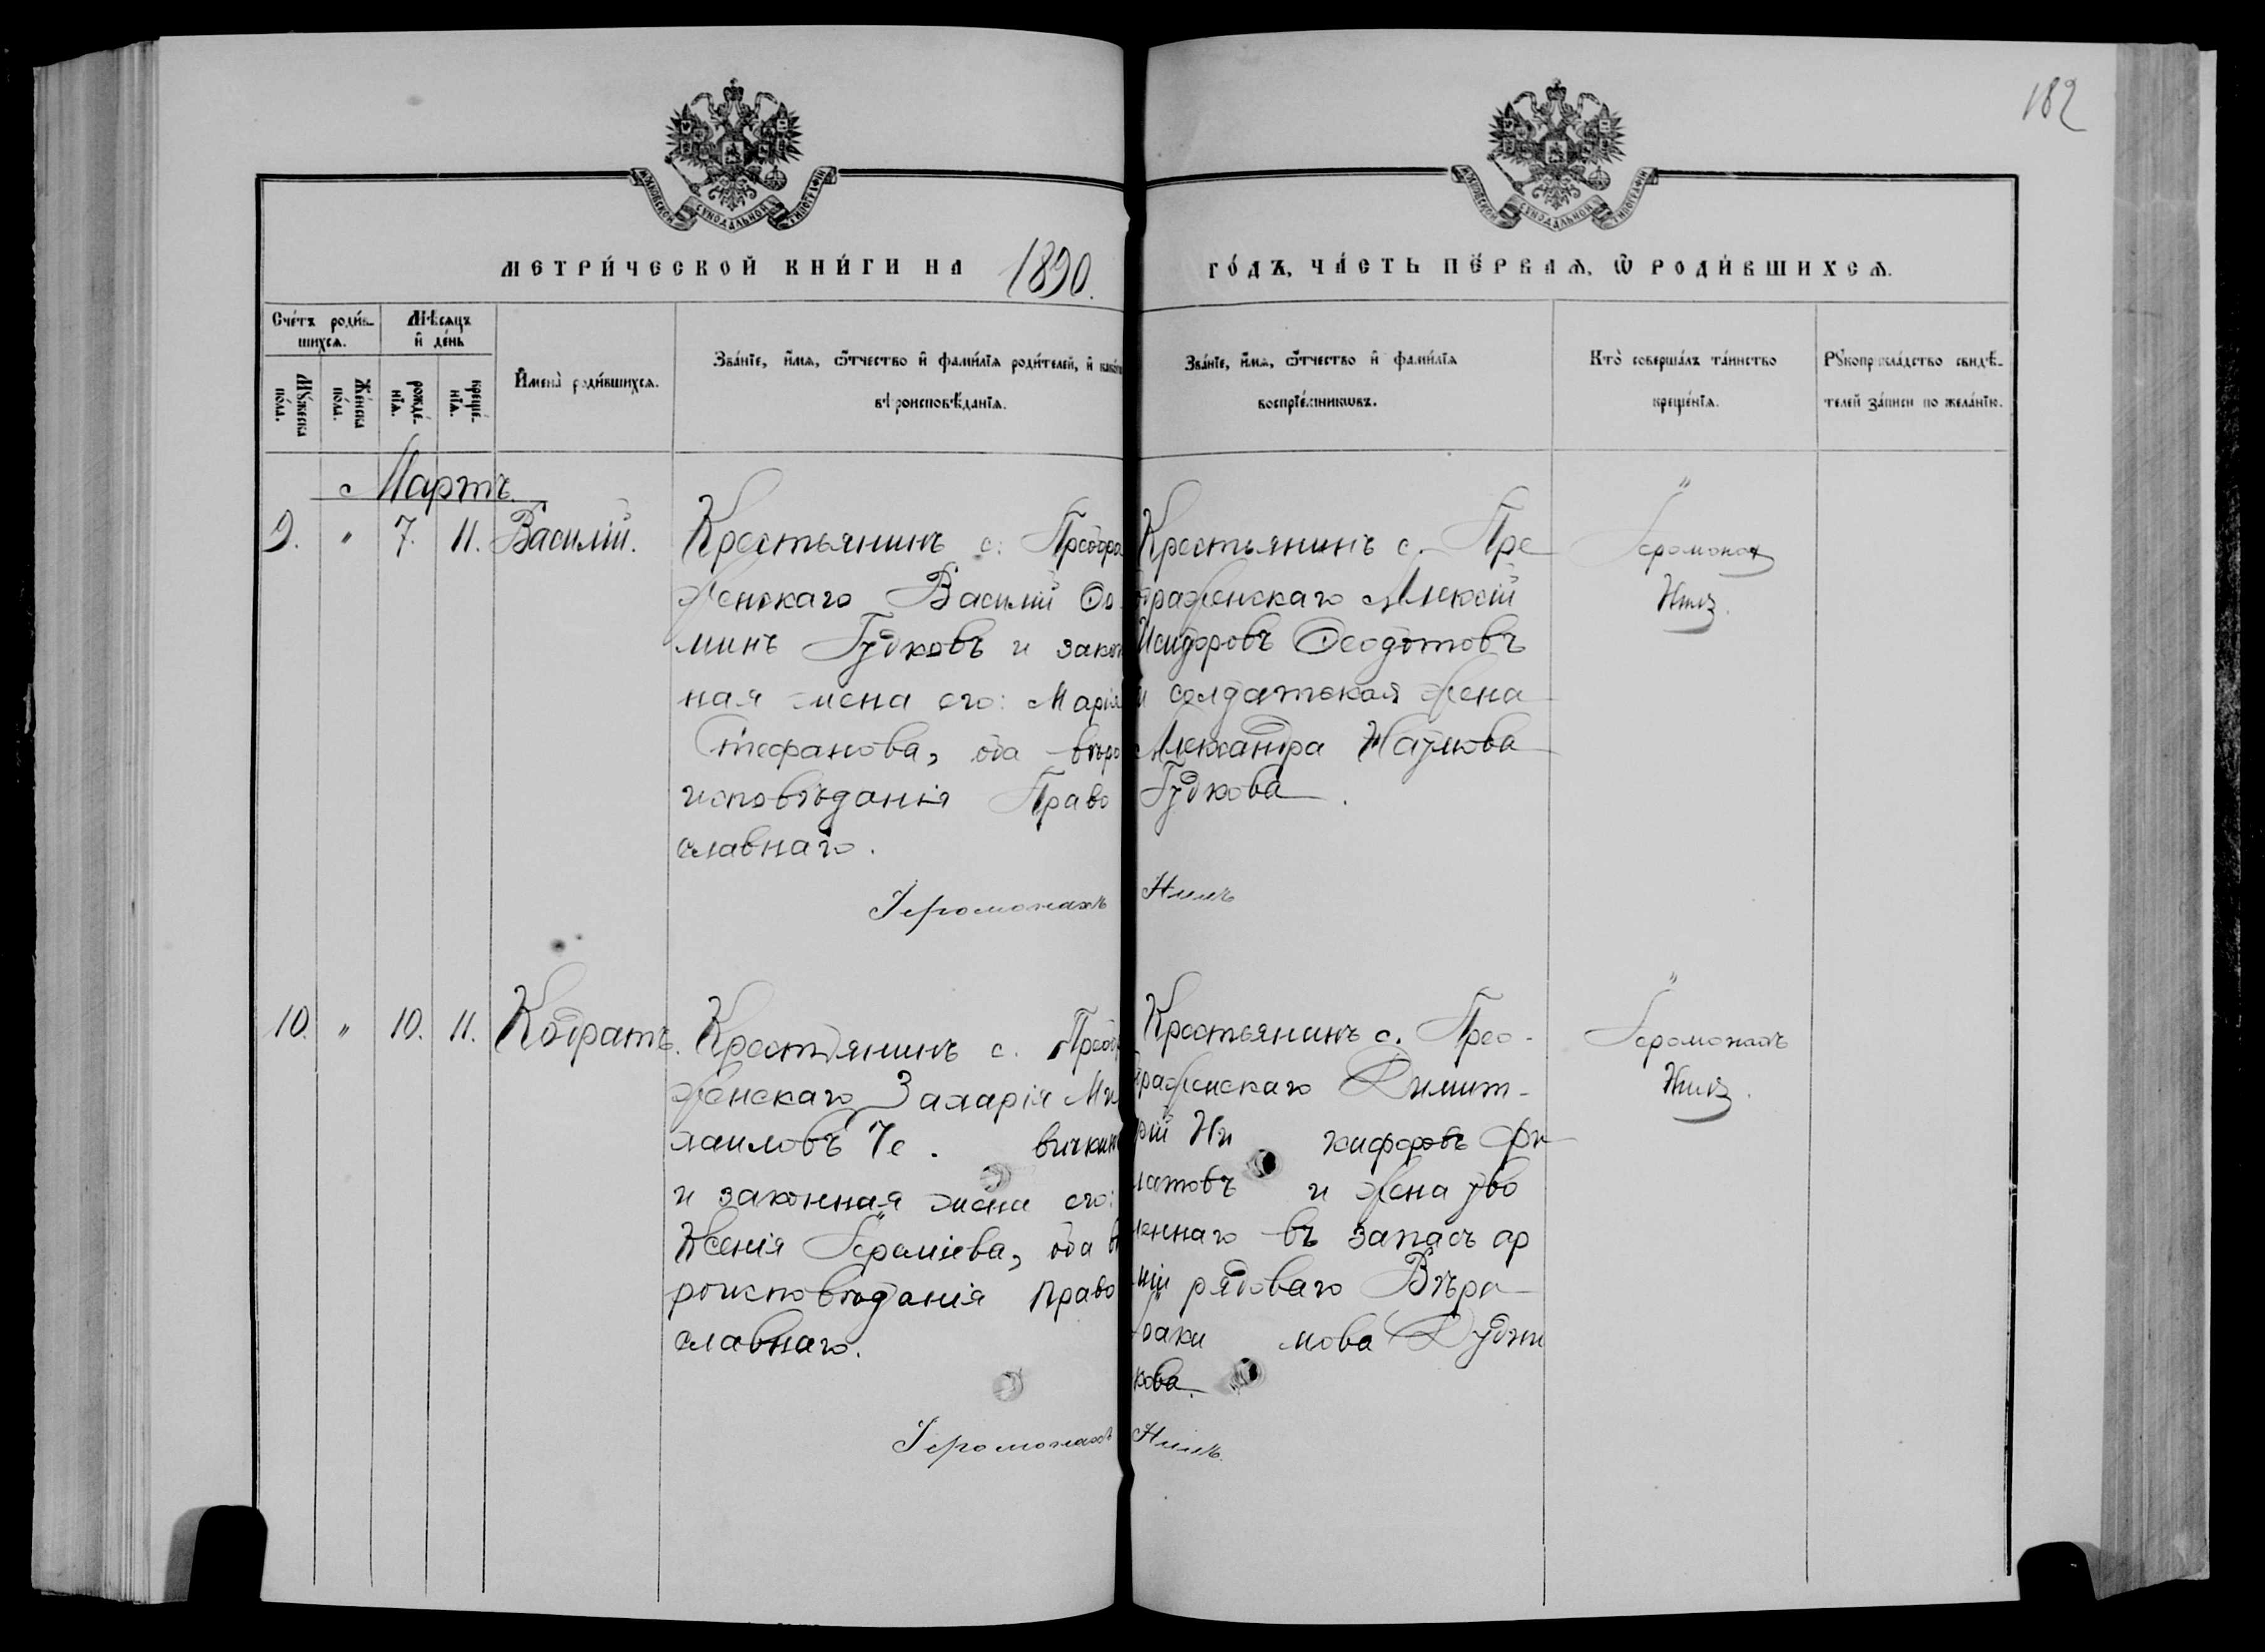 182
МОСКОВСКОЙ СѴНОДАЛЬНОЙ ТИПОГРАФІИ
МОСКОВСКОЙ СѴНОДАЛЬНОЙ ТИПОГРАФІИ
МЕТРИ́ЧЕСКОЙ КНИ́ГИ НА 1890.
ГО́ДЪ, ЧА́СТЬ ПЕ́РВАѦ, Ѿ РОДИ́ВШИХСѦ.
Сче́тъ роди́в-
шихсѧ.
Мꙋ́жеска
по́ла.
Же́нска
по́ла.
Мѣ́сѧцъ
и҆ де́нь
рожде́-
нїѧ.
креще́-
нїѧ.
И҆мена̀ роди́вшихсѧ.
Зва́нїе, и҆́мѧ, ѻ҆́тчество и҆ фами́лїѧ роди́телей, и҆ како́гѡ
вѣроисповѣ́данїѧ.
Зва́нїе, и҆́мѧ, ѻ҆́тчество и҆ фами́лїѧ
воспрїе́мникѡвъ.
Кто̀ соверша́лъ та́инство
креще́нїѧ.
Рꙋкоприкла́дство свидѣ́-
телей за́писи по жела́нїю.
Мартъ.
9. " 7. 11. Василій.
Крестьянинъ с. Преобра
женскаго Василій Ѳо
минъ Гудковъ и закон
ная жена его: Марія
Стефанова, оба вѣро
исповѣданія Право
славнаго.
Крестьянинъ с. Пре
ображенскаго Алексій
Исидоровъ Ѳеодотовъ
и солдатская жена
Александра Наумова
Гудкова.
"
Іеромонах
Нилъ.
Іеромонахъ Нилъ
10. " 10. 11. Кодратъ.
Крестьянинъ с. Преобр
женскаго Захарія Ми
хаиловъ Че. вичкин
и законная жена его:
Ксенія Іереміева, оба вѣ
роисповѣданія право
славнаго.
Крестьянинъ с. Прео-
браженскаго Димит-
рій Ни кифоровъ Фи
латовъ и жена уво
леннаго въ запасъ ар
міи рядоваго Вѣра
Іоаки мова Дудни
кова.
"
Іеромонахъ
Нилъ.
Іеромонахъ Нилъ.